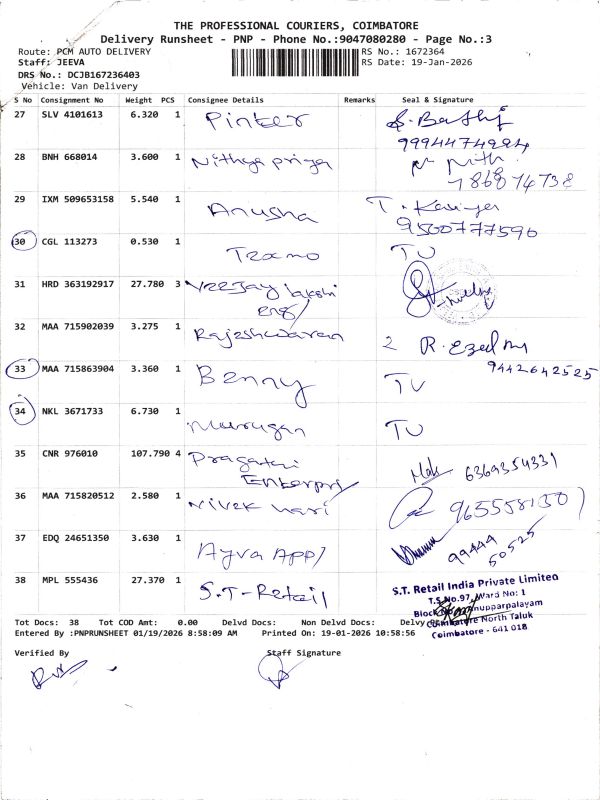 THE PROFESSIONAL COURIERS, COIMBATORE
Delivery Runsheet - PNP - Phone No.:9047080280 - Page No.:3
Route: PCM AUTO DELIVERY
RS No.: 1672364
Staff: JEEVA
RS Date: 19-Jan-2026
DRS No.: DCJB167236403
Vehicle: Van Delivery
S No Consignment No Weight PCS Consignee Details Remarks Seal & Signature
27 SLV 4101613 6.320 1 Pinker
28 BNH 668014 3.600 1 Nithya priya
29 IXM 509653158 5.540 1 Anusha
9500777590
30 CGL 113273 0.530 1
31 HRD 363192917 27.780 3 lakshi
eng/
32 MAA 715902039 3.275 1 Rajeshwaran 2
9442642525
33 MAA 715863904 3.360 1 Benny
34 NKL 3671733 6.730 1 Murugan
35 CNR 976010 107.790 4 6369354331
36 MAA 715820512 2.580 1 Nivek hari
37 EDQ 24651350 3.630 1 Ayva App/
99444
50525
38 MPL 555436 27.370 1 S.T-Retail
S.T. Retail India Private Limited
T.S.No.97, Ward No: 1
North Taluk
Coimbatore - 641 018
Tot Docs: 38 Tot COD Amt: 0.00 Delvd Docs: Non Delvd Docs:
Entered By :PNPRUNSHEET 01/19/2026 8:58:09 AM Printed On: 19-01-2026 10:58:56
Verified By Staff Signature